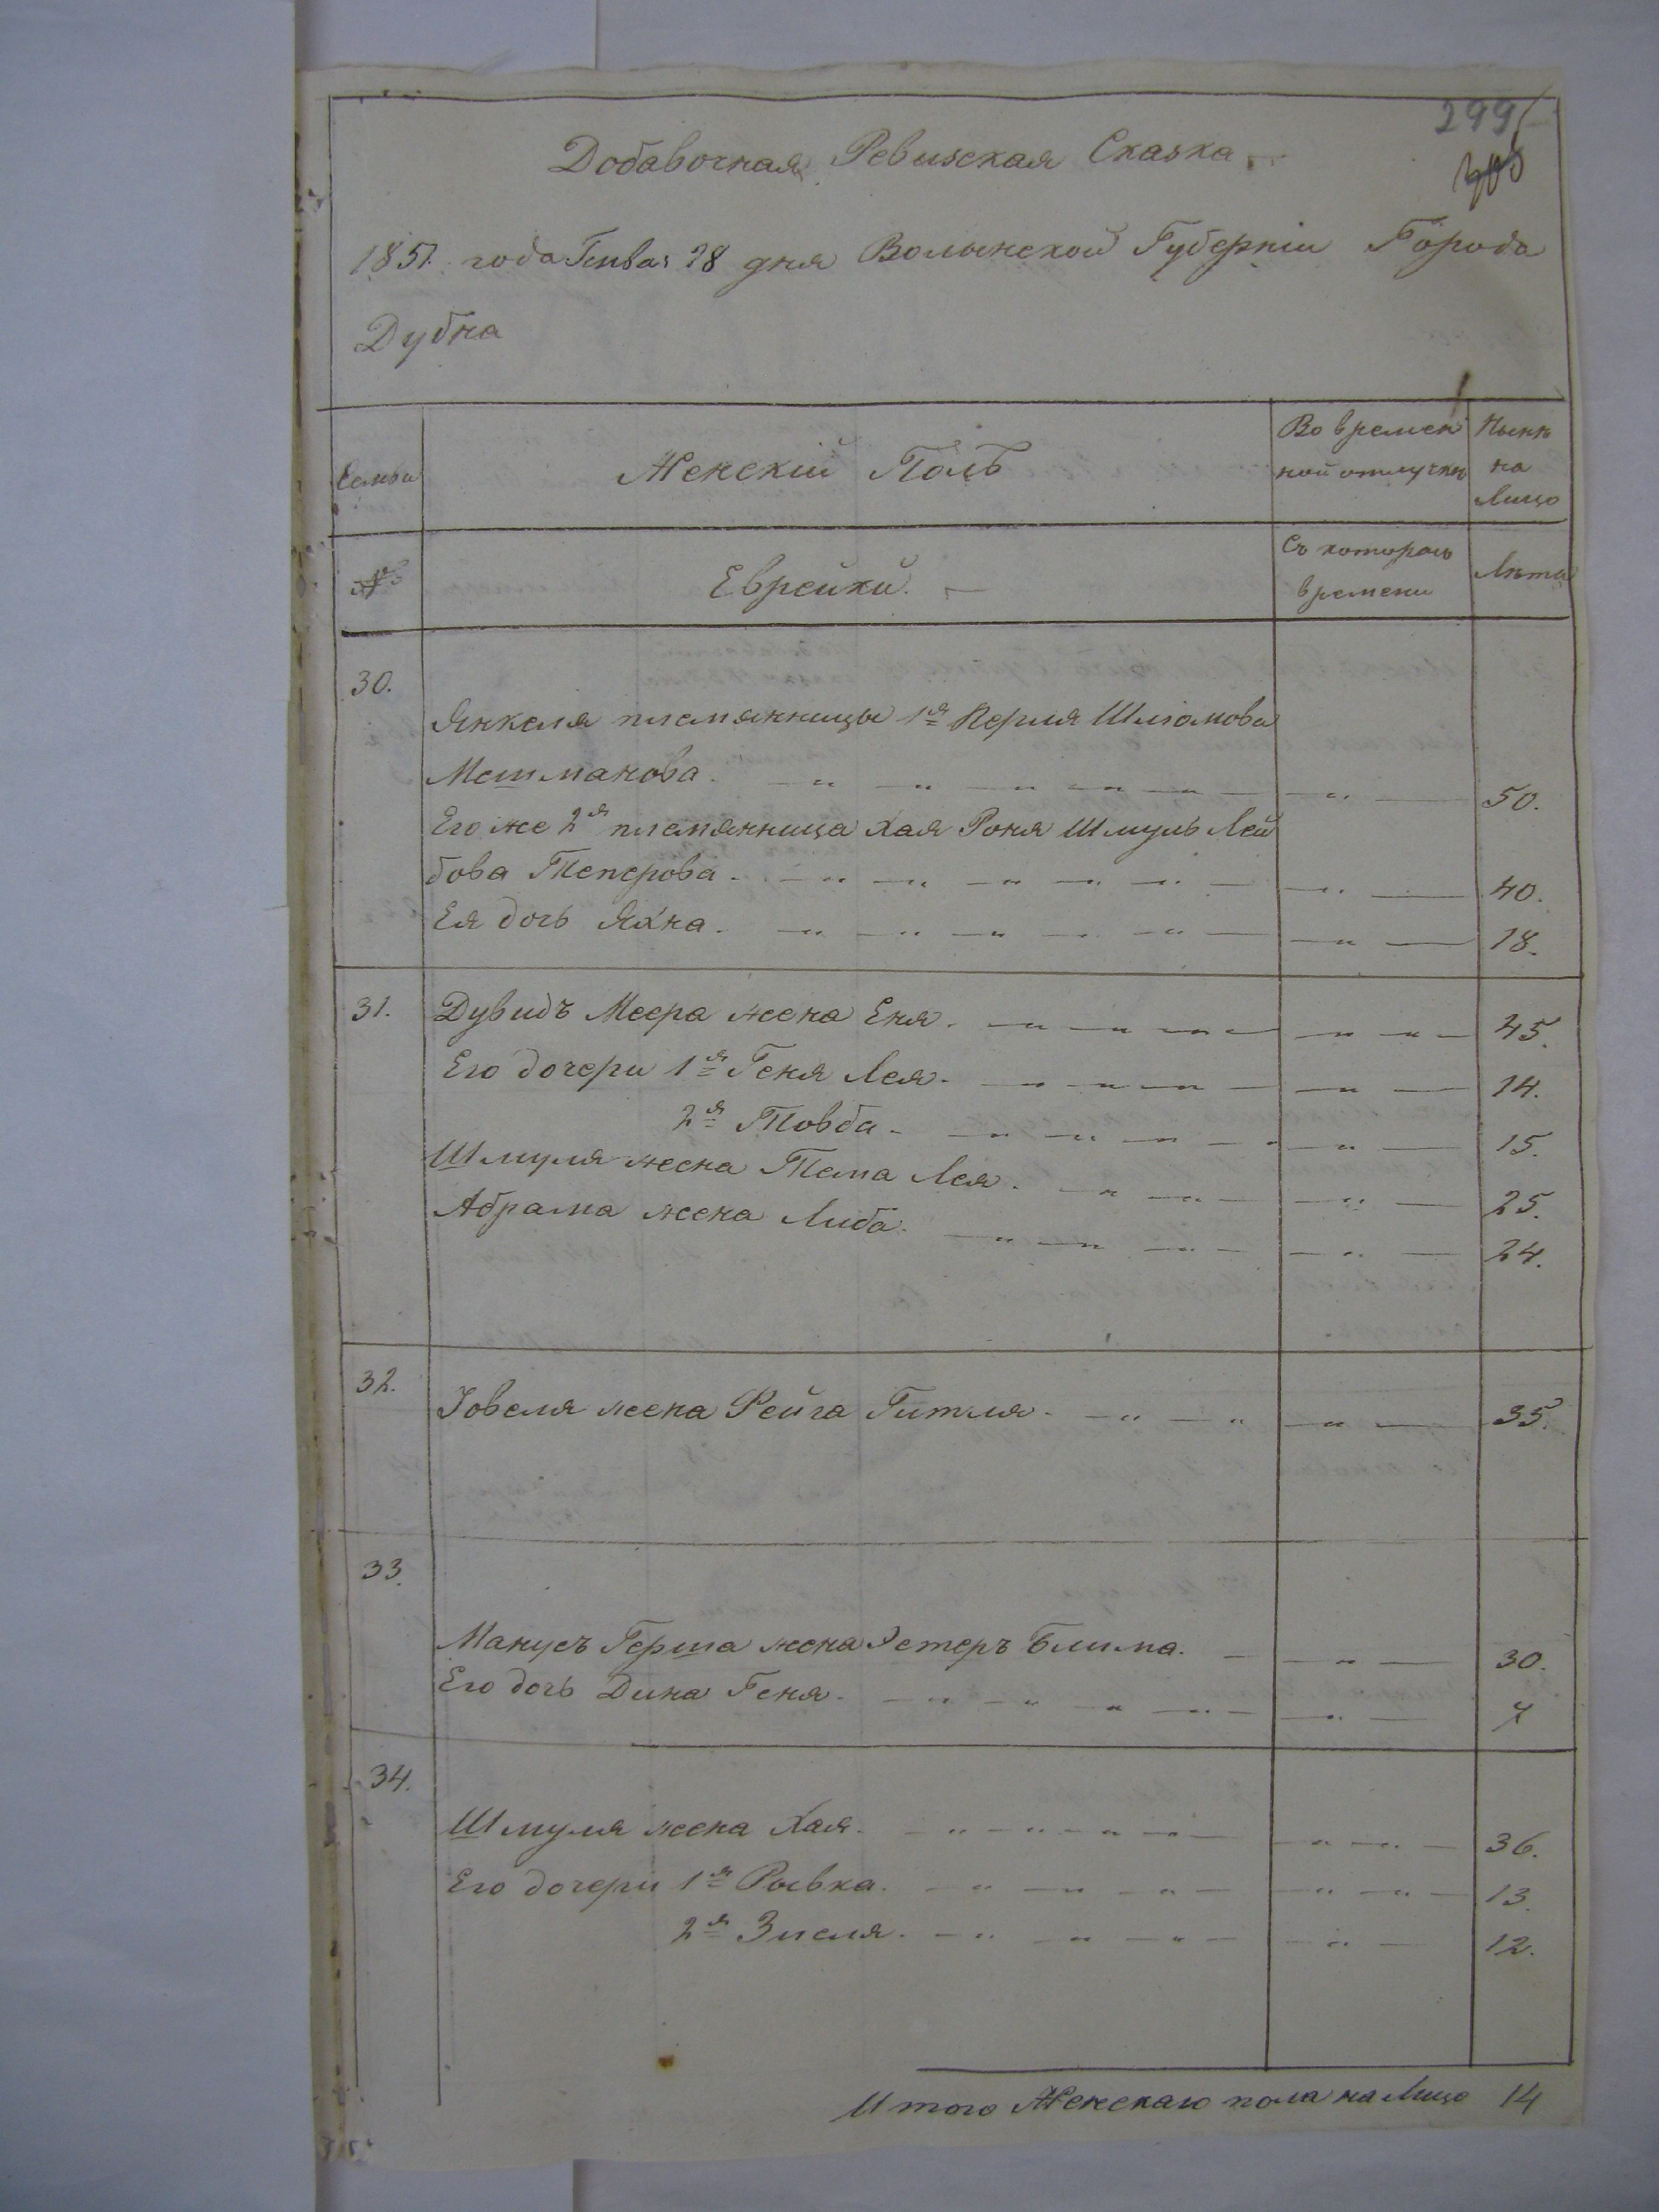 299
305
Добавочная Ревизская Сказка.
1851 года Генвар 28 дня Волынской Губерніи Города
Дубна
Семьи
Женскій Полъ
Во времен
ной отлучкѣ
Нынѣ
на
Лицо
№
Еврейки. —
Съ котораго
времени
Лѣта
30.
Янкеля племянницы 1я Перля Шліомова
Мошманова. 50.
Его же 2я племянница Хая Роня Шмуль Лей
бова Теперова. 40.
Ея дочь Яхна. 18.
31. Дувидъ Меера жена Еня. 45.
Его дочери 1я Геня Лея. 14.
2я Товба. 15.
Шмуля жена Тема Лея. 25.
Абрама жена Либа. 24.
32.
Іовеля жена Рейга Гитля. 35.
33.
Манусъ Герша жена Эстеръ Блима. 30.
Его дочь Дина Геня. 7
34.
Шмуля жена Хая. 36.
Его дочери 1я Рывка. 13.
2я Зисля. 12.
Итого Женскаго пола на Лицо 14